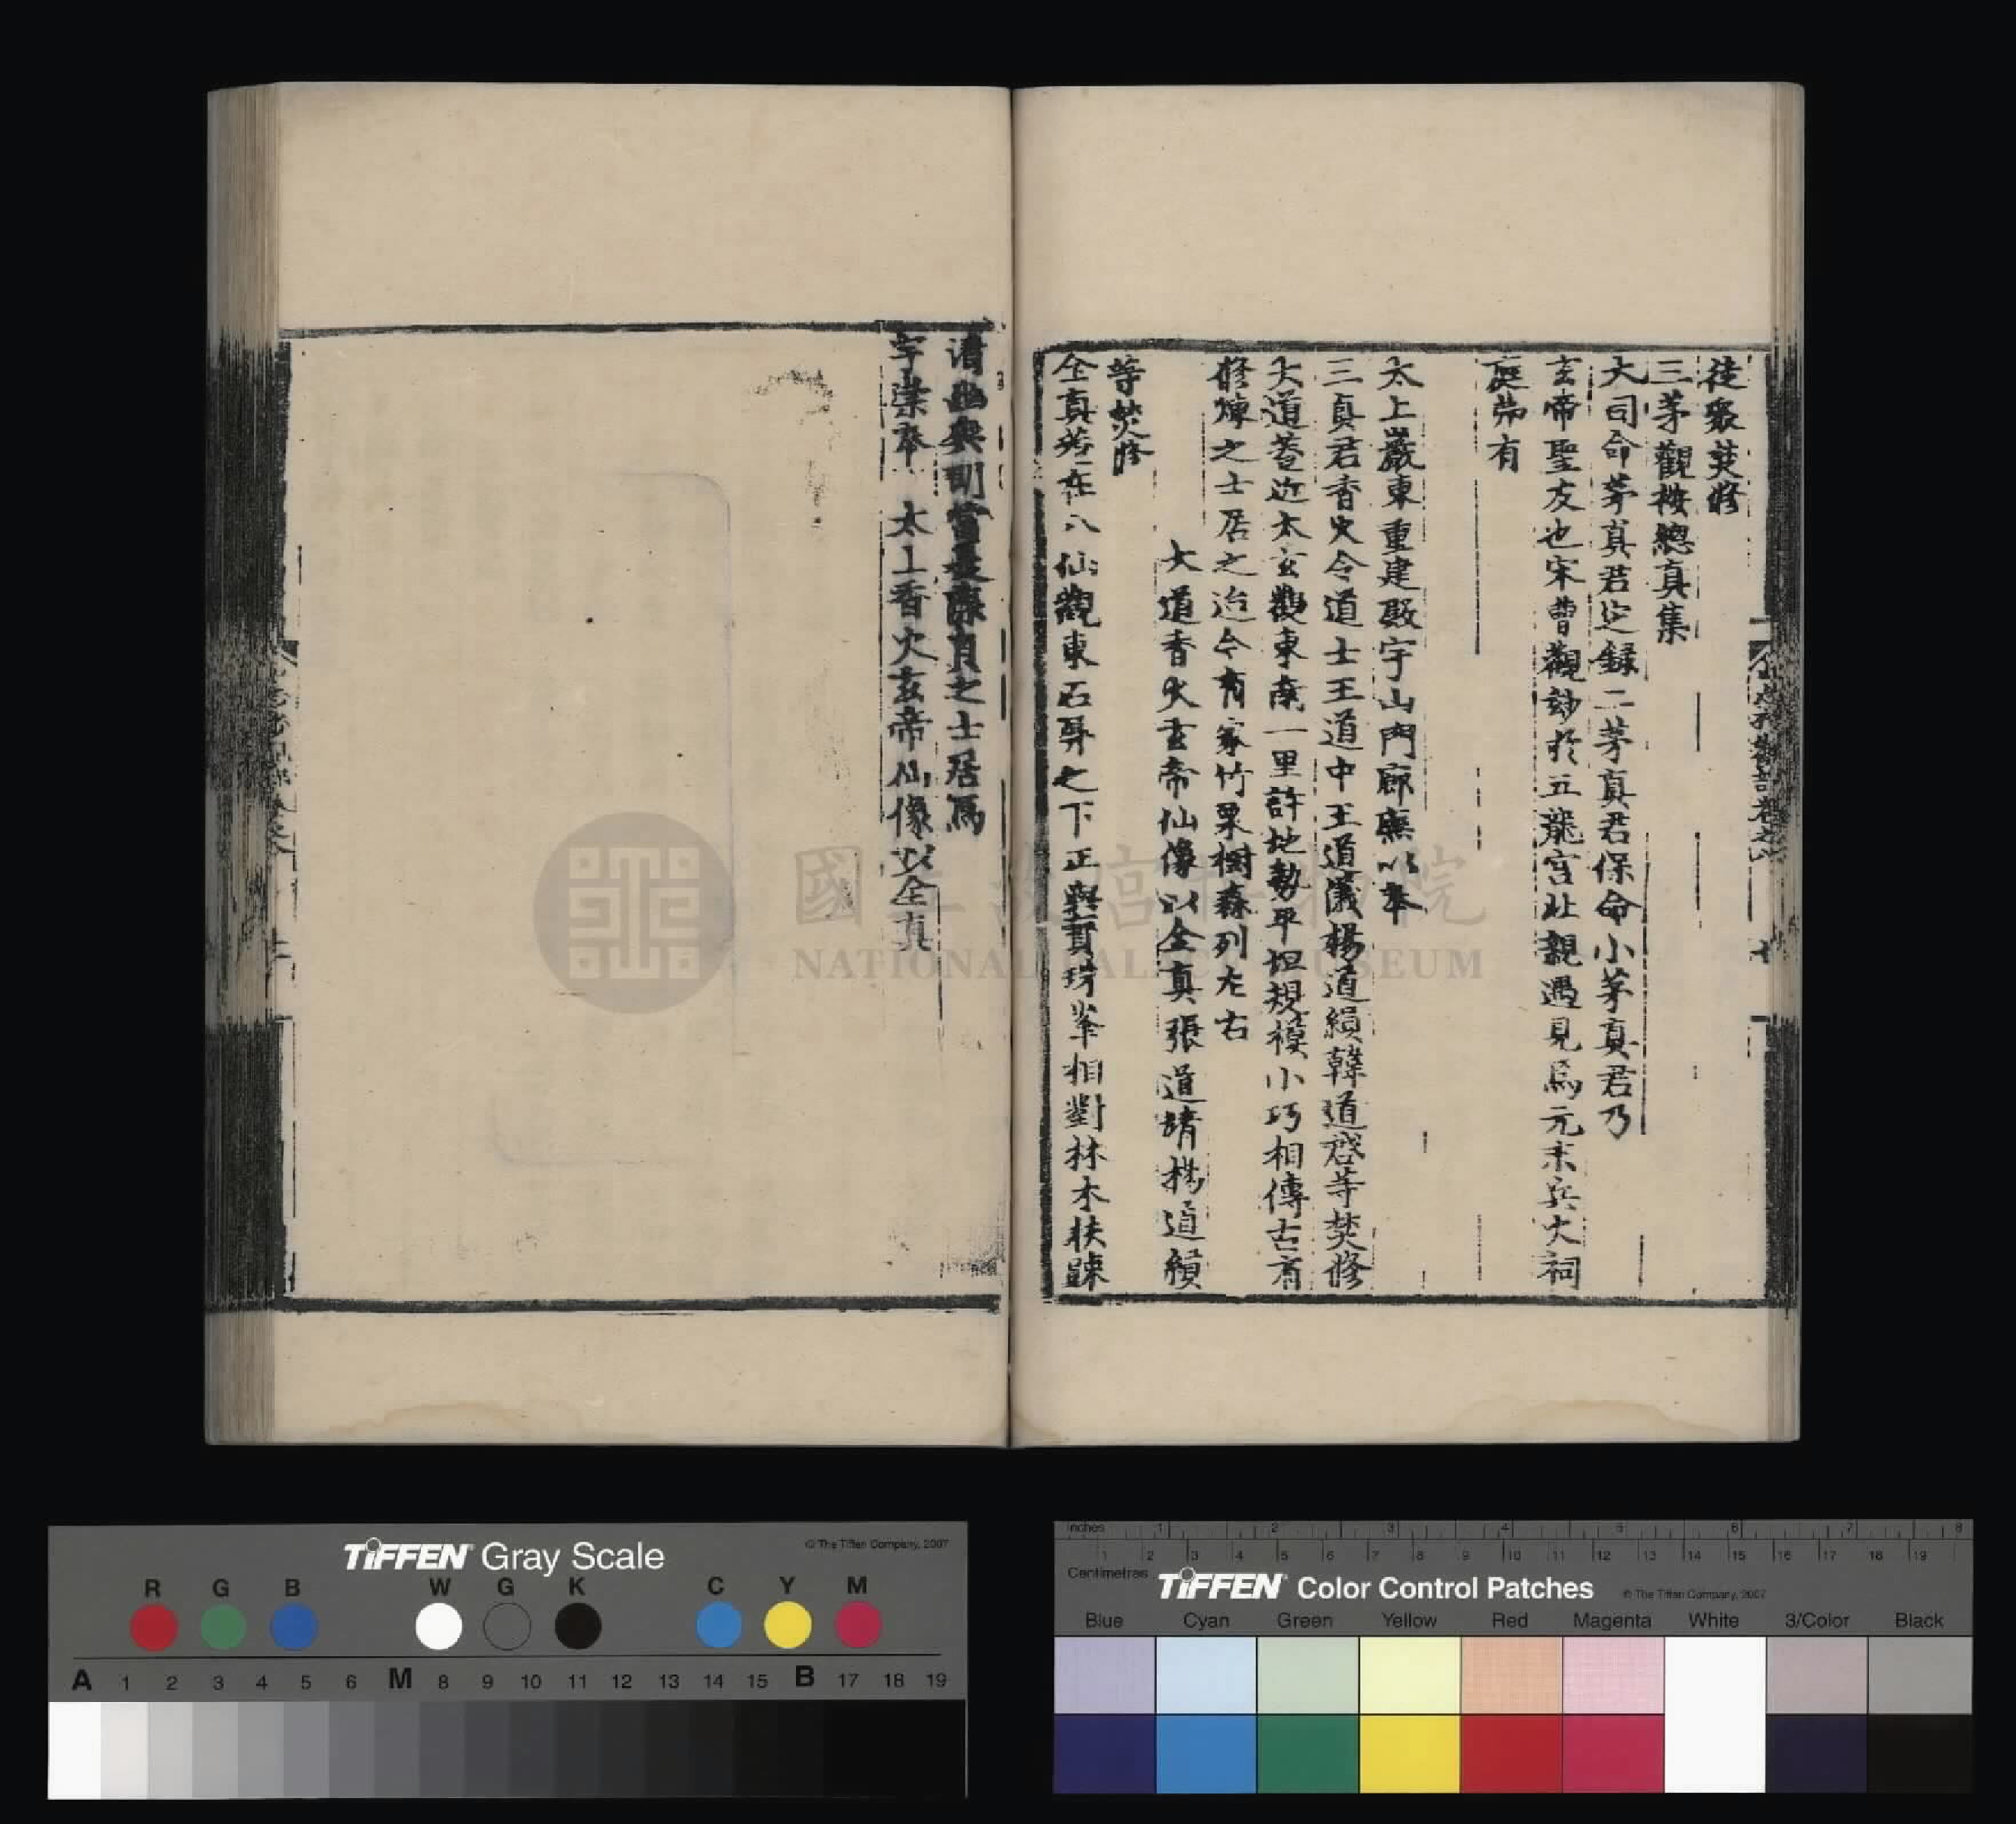 徒衆焚修
三茅觀按總真集
大司命茅真君定録二茅真君保命小茅真君乃
玄帝聖友也宋曹觀妙於五龍宫北親遇見焉元末兵火祠
廢弟有
太上巖東重建殿宇山門廊廡以奉
三真君香火令道士王道中王道瀛楊道縯韓道啓等焚修
大道菴近太玄觀東南一里許地勢平坦規模小巧相傳古有
修煉之士居之迨今有家竹栗樹森列左右
大道香火玄帝仙像以全真張道靖楊道縯
等焚修
全真菴在八仙觀東石
之下正與
峯相對林木扶踈
清幽
之士居焉
宇崇奉
太上香火玄帝仙像以全真
國立故宮博物院
NATIONAL PALACE MUSEUM
TIFFEN Gray Scale
© The Tiffen Company, 2007
R G B W G K C Y M
A 1 2 3 4 5 6 M 8 9 10 11 12 13 14 15 B 17 18 19
Inches 1 2 3 4 5 6 7 8
1 2 3 4 5 6 7 8 9 10 11 12 13 14 15 16 17 18 19
Centimetres
TIFFEN Color Control Patches
© The Tiffen Company, 2007
Blue Cyan Green Yellow Red Magenta White 3/Color Black